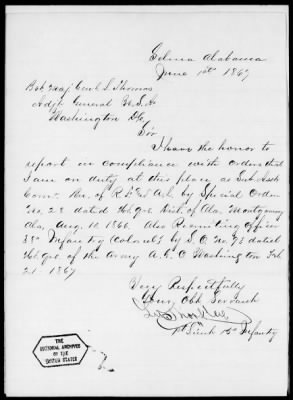 Selma Alabama
June 1st 1867
Bvt Maj Genl L Thomas
Adjt General U.S.A
Washington D.C.
Sir
I have the honor to
report in compliance with orders that
I am on duty at this place as Sub Asst
Comr. Bu. of R. F. & A. L. by Special Orders
No. 28 dated Hdqrs Dist. of Ala. Montgomery
Ala, Aug. 10. 1866. Also Recruiting Officer
38" Infantry (Colored) by S. O. No. 93 dated
Hdqrs of the Army A. G. O Washington Feb
21" 1867
Very Respectfully
Your Obt Servant
1st Lieut 15" Infantry
THE
NATIONAL ARCHIVES
OF THE
UNITED STATES